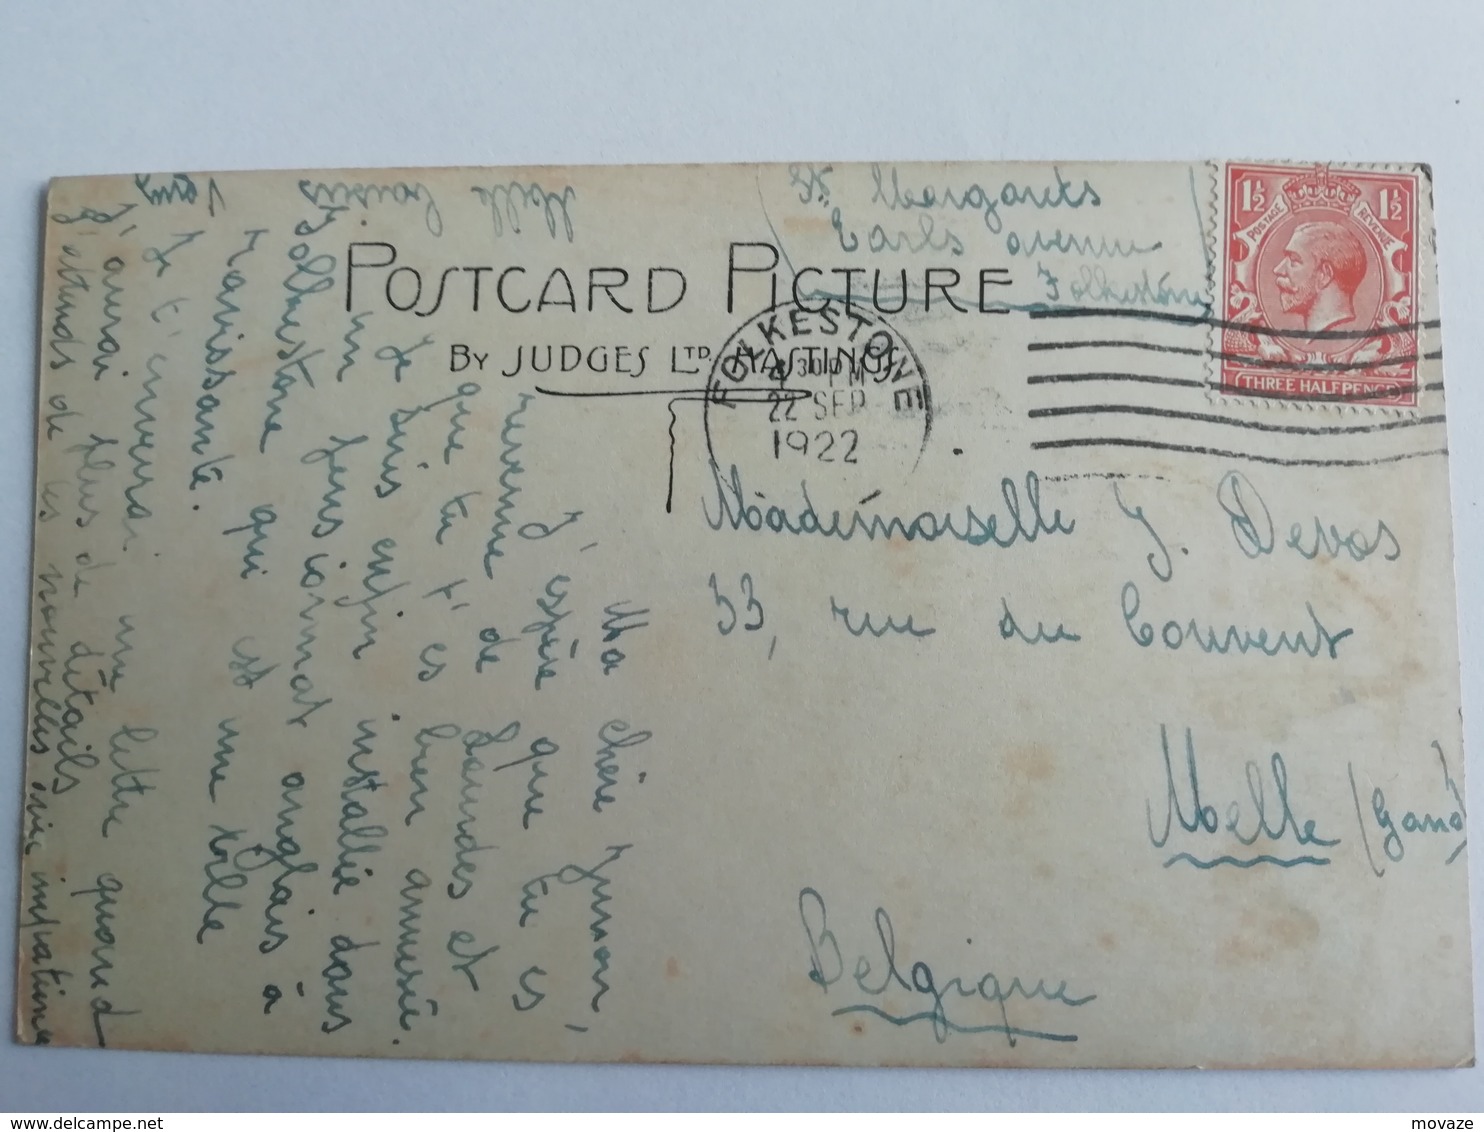 POSTCARD PICTURE
BY JUDGES LTD. HASTINGS
St. Margarets
Earls avenue
Folkestone
1½ 1½
POSTAGE REVENUE
THREE HALFPENCE
FOLKESTONE
4 30 PM
22 SEP
1922
Mademoiselle J. Devos
33, rue du Couvent
Melle (Gand)
Belgique
Ma chère
J'espère que tu es
revenue de Londres et
que tu t'es bien amusée.
Je suis enfin installée dans
un pensionnat anglais à
Folkestone qui est une ville
ravissante.
Je t'enverrai une lettre quand
j'aurai plus de détails
J'attends de tes nouvelles avec impatience
Mille baisers